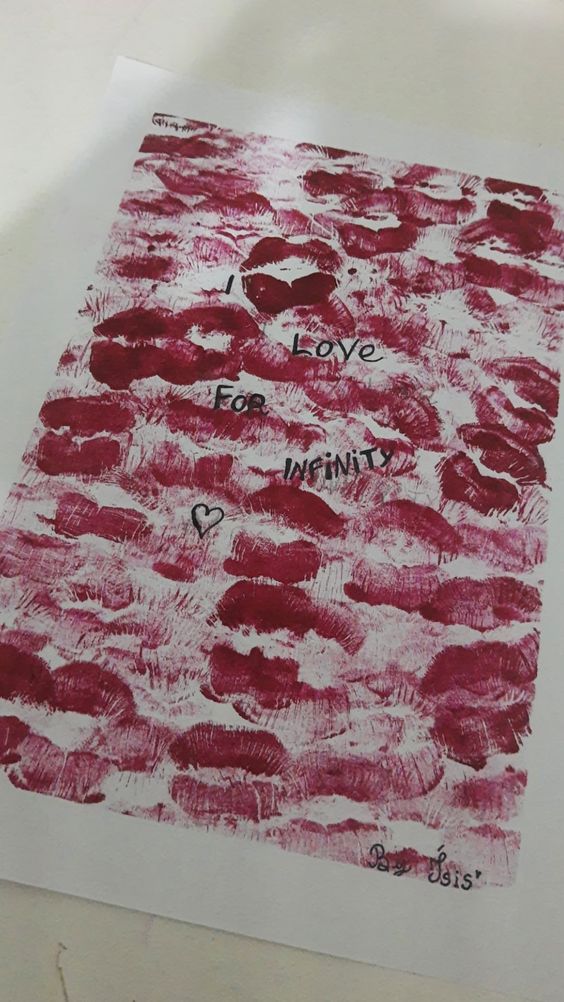 I
LOVE
FOR
INFINITY
By Ísis